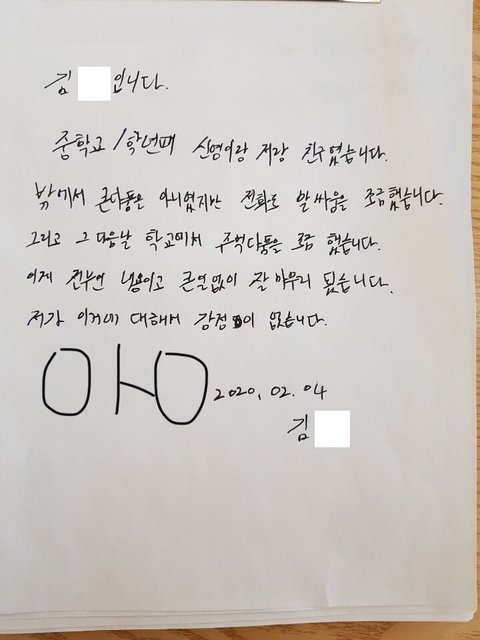 김 입니다.
중학교 1학년때 신영이랑 저랑 친구였습니다.
밖에서 큰다툼은 아니였지만 전화로 말싸움을 조금했습니다.
그리고 그 다음날 학교에서 주먹다툼을 조금 했습니다.
이게 전부인 내용이고 큰일없이 잘 마무리 됬습니다.
저감 이거에 대해서 감정이 없습니다.
아유
2020, 02. 04
김